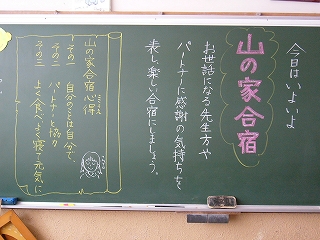 今日はいよいよ
山の家合宿
お世話になる先生方や
パートナーに感謝の気持ちを
表し、楽しい合宿にしましょう。
山の家合宿心得
こころえ
その一 自分のことは自分で。
その二 パートナーと協力
その三 よく食べよく寝て元気に